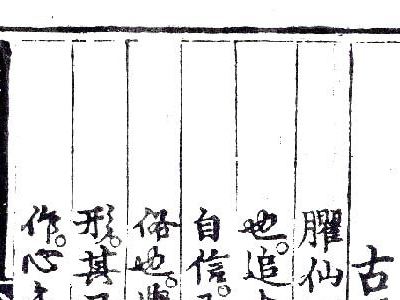 古
臞仙
也。追
自信。
俗也。
形。其
作。心